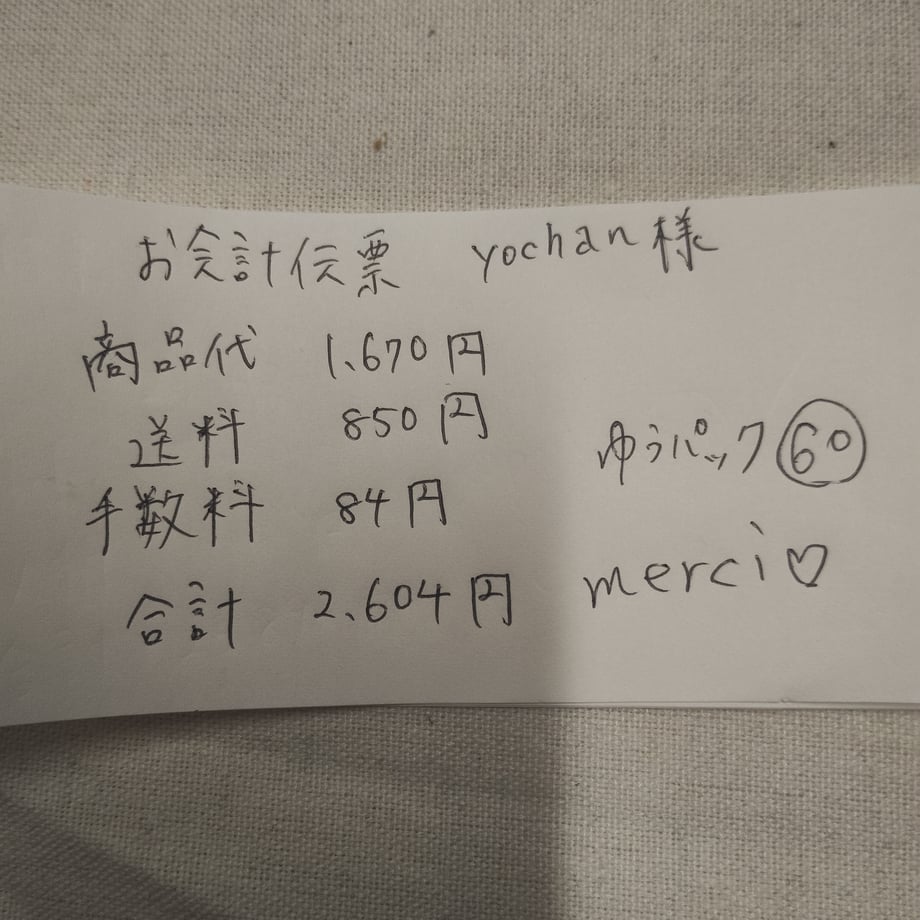 お会計伝票 yochan様
商品代 1、670円
送料 850円
ゆうパック60
手数料 84円
合計 2、604円
merci♡